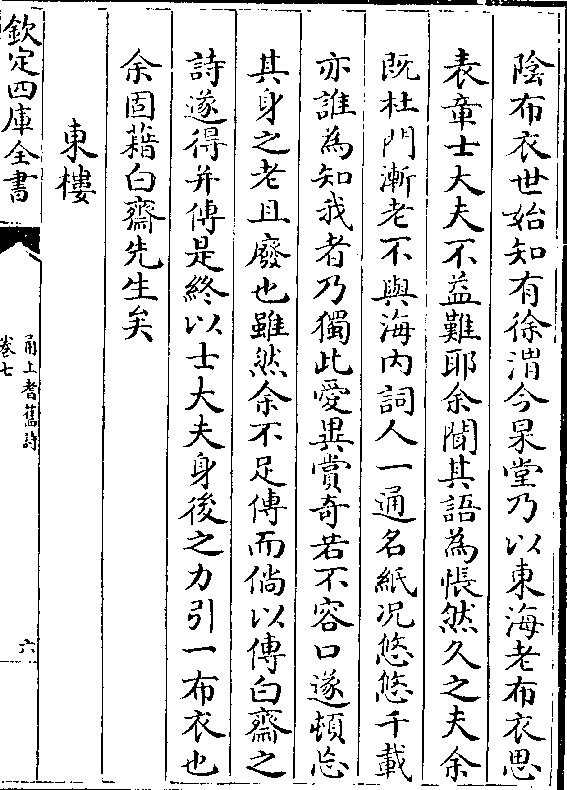 陰布衣世始知有徐渭今杲堂乃以東海老布衣思
表章士大夫不益難耶余聞其語為悵然久之夫余
既杜門漸老不與海内詞人一通名紙况悠悠千載
亦誰為知我者乃獨此愛異賞奇若不容口遂頓忘
其身之老且廢也雖然余不足傳而倘以傳白齋之
詩遂得并傳是終以士大夫身後之力引一布衣也
余固藉白齋先生矣
東樓
欽定四庫全書
甬上耆舊詩
卷七
六